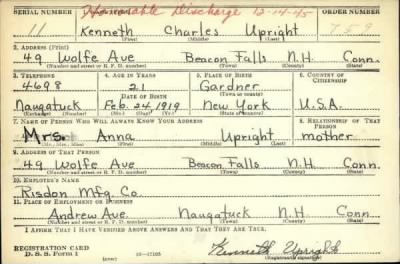 SERIAL NUMBER Honorable Discharge 12-14-45 ORDER NUMBER
11 Kenneth Charles Upright 759
(First) (Middle) (Last)
2. ADDRESS (Print)
49 Wolfe Ave Beacon Falls N.H. Conn.
(Number and street or R. F. D. number) (Town) (County) (State)
3. TELEPHONE 4. AGE IN YEARS 5. PLACE OF BIRTH 6. COUNTRY OF CITIZENSHIP
4698 21 Gardner
DATE OF BIRTH (Town or county)
Naugatuck Feb. 24 1919 New York U.S.A.
(Exchange) (Number) (Mo.) (Day) (Yr.) (State or country)
7. NAME OF PERSON WHO WILL ALWAYS KNOW YOUR ADDRESS 8. RELATIONSHIP OF THAT PERSON
Mrs. Anna Upright mother
(Mr., Mrs., Miss) (First) (Middle) (Last)
9. ADDRESS OF THAT PERSON
49 Wolfe Ave Beacon Falls N.H. Conn.
(Number and street or R. F. D. number) (Town) (County) (State)
10. EMPLOYER'S NAME
Risdon Mfg. Co
11. PLACE OF EMPLOYMENT OR BUSINESS
Andrew Ave. Naugatuck N.H. Conn
(Number and street or R. F. D. number) (Town) (County) (State)
I AFFIRM THAT I HAVE VERIFIED ABOVE ANSWERS AND THAT THEY ARE TRUE.
REGISTRATION CARD
D. S. S. FORM 1 (over) 16-17105 Kenneth Upright
(Registrant's signature)